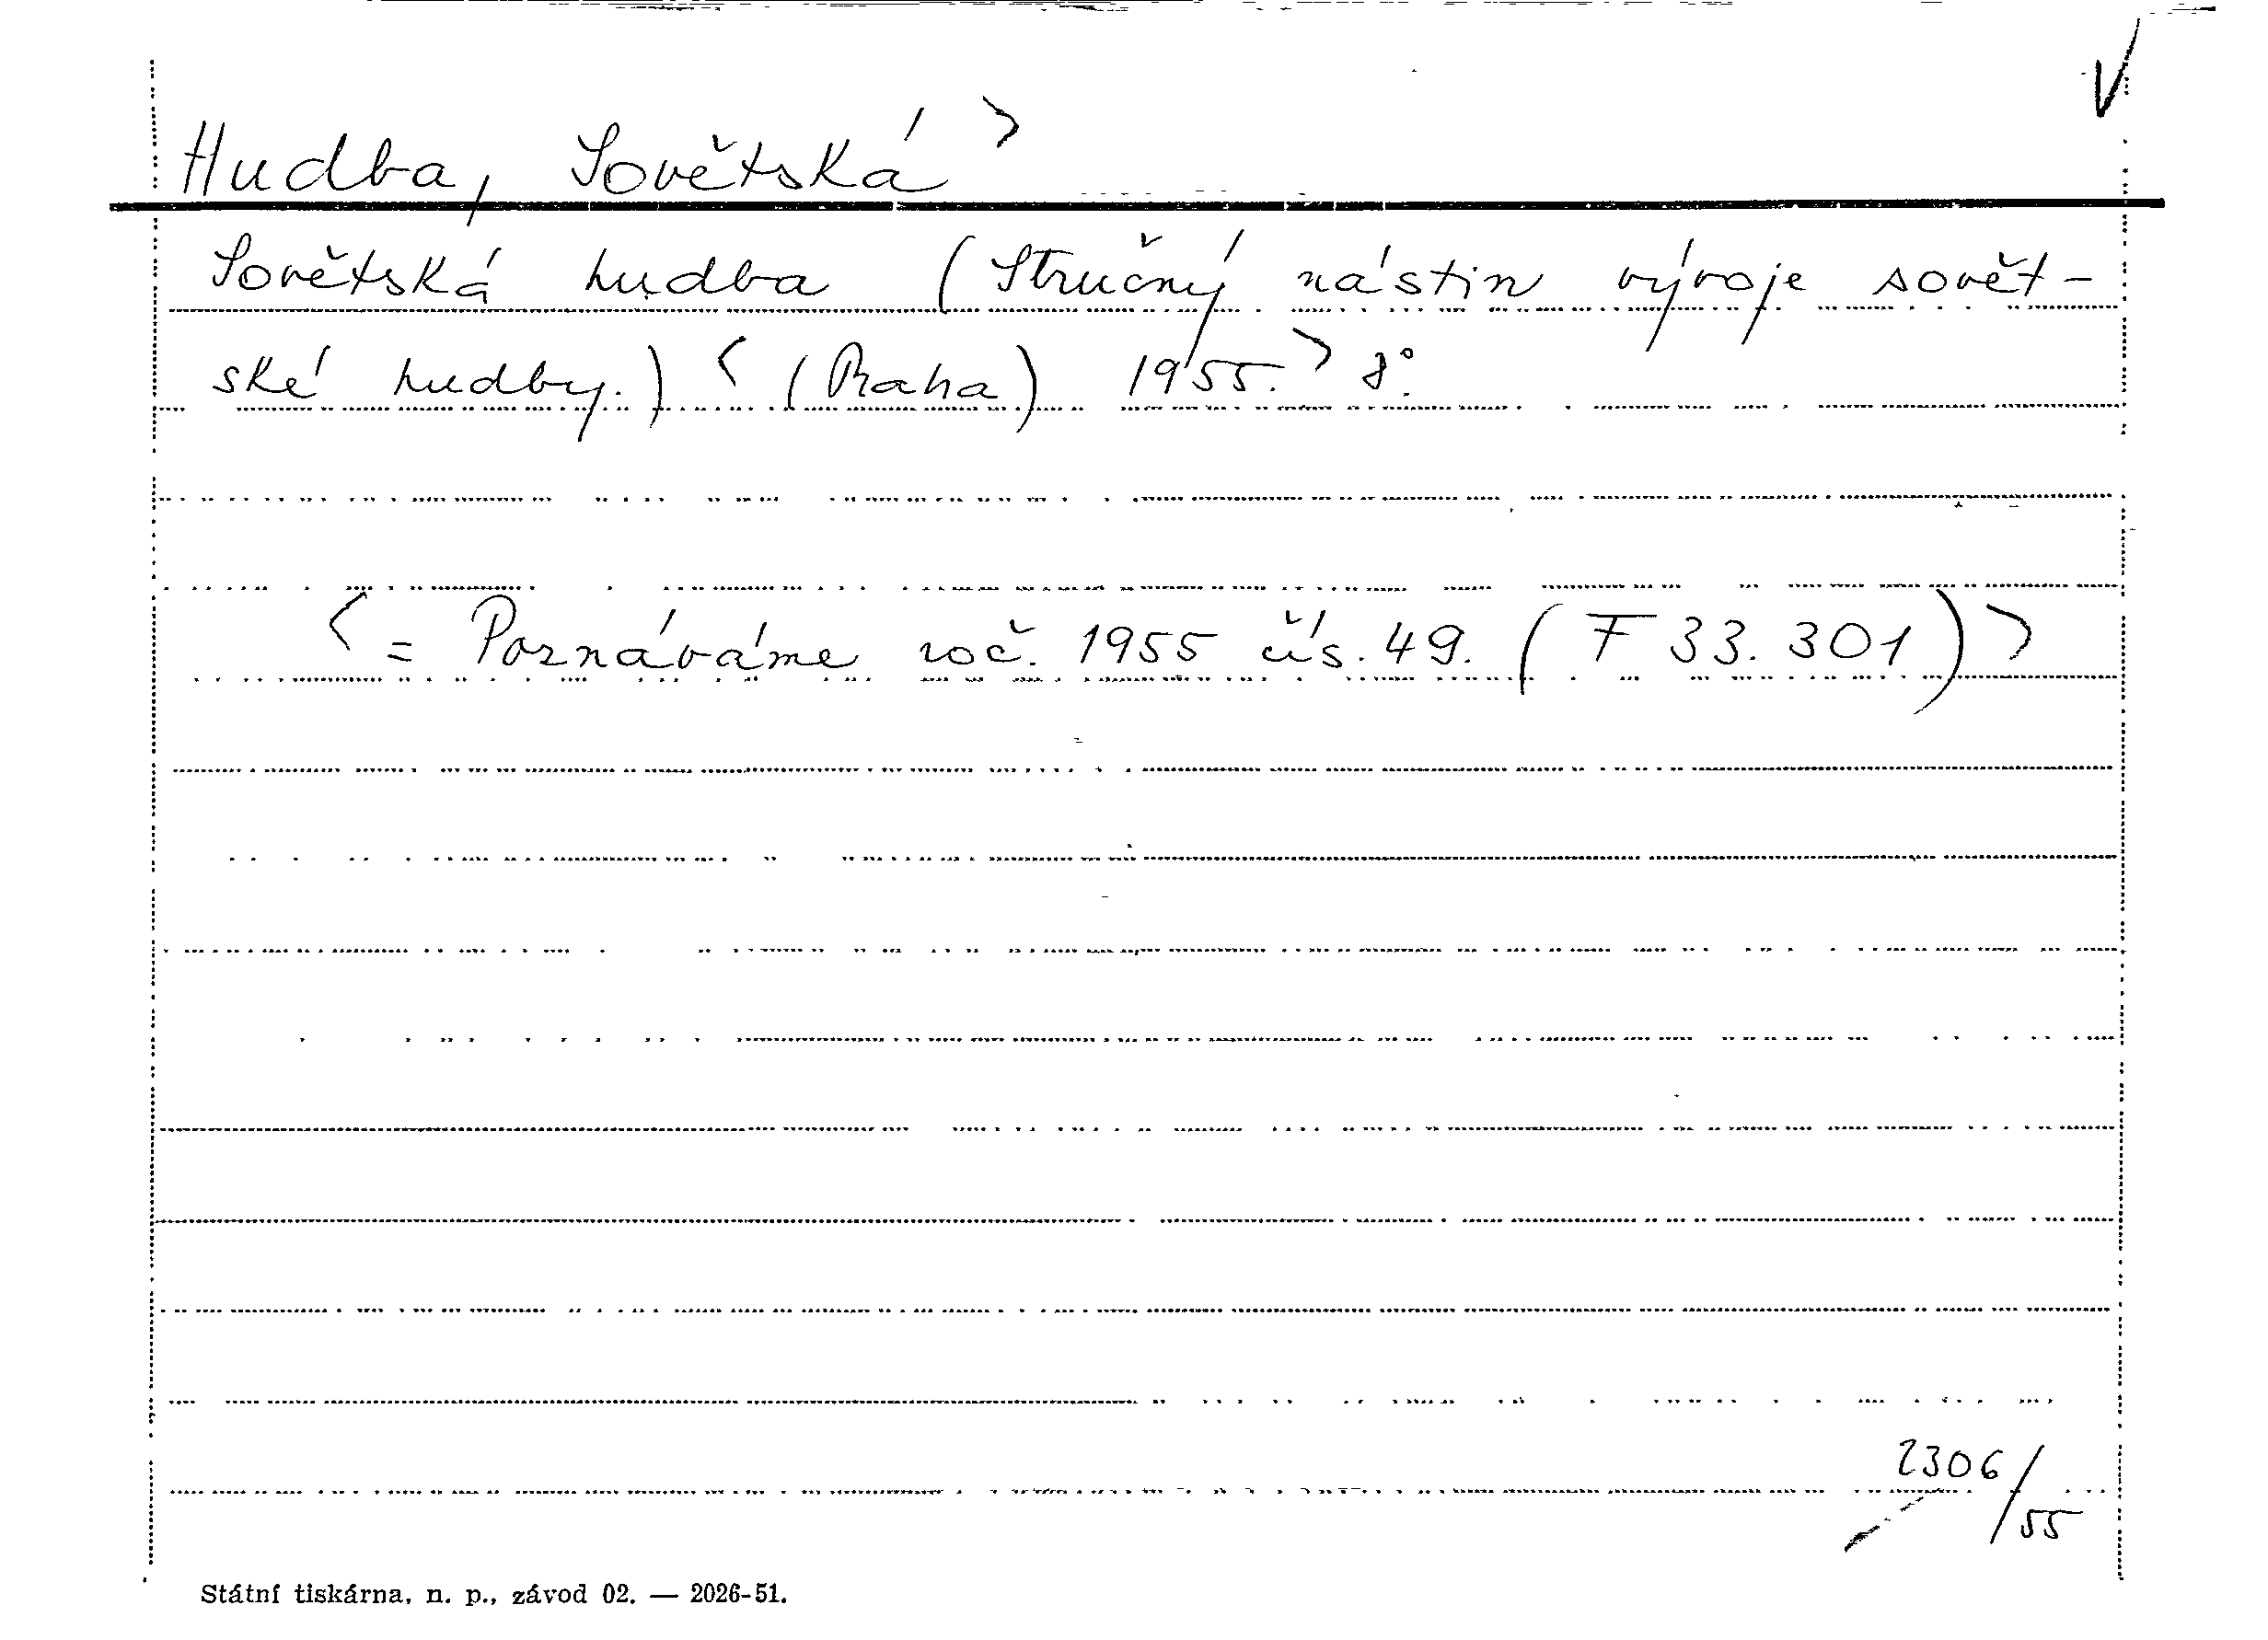 Hudba, Sovětská >
Sovětská hudba (Stručný nástin vývoje sovět-
ské hudby.) < (Praha) 1955. > 8°.
< = Poznáváme roč. 1955 čís. 49. (F 33.301) >
2306/55
Státní tiskárna, n. p., závod 02. — 2026-51.